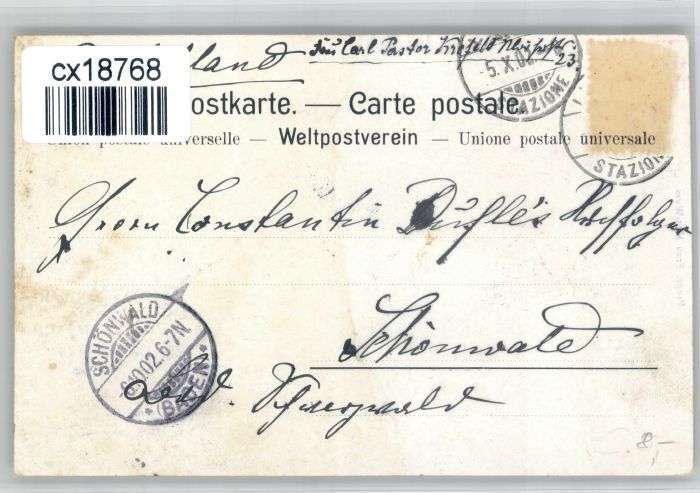 cx18768
land
Frau Carl Pastor Krefeld
23.
ostkarte. — Carte postale.
Union postale universelle — Weltpostverein — Unione postale universale
-5.X.02
STAZIONE
STAZIONE
Herrn Constantin
Schönwald
SCHÖNWALD
02.6-7N.
* (BADEN) *
Schwarzwald
8,-